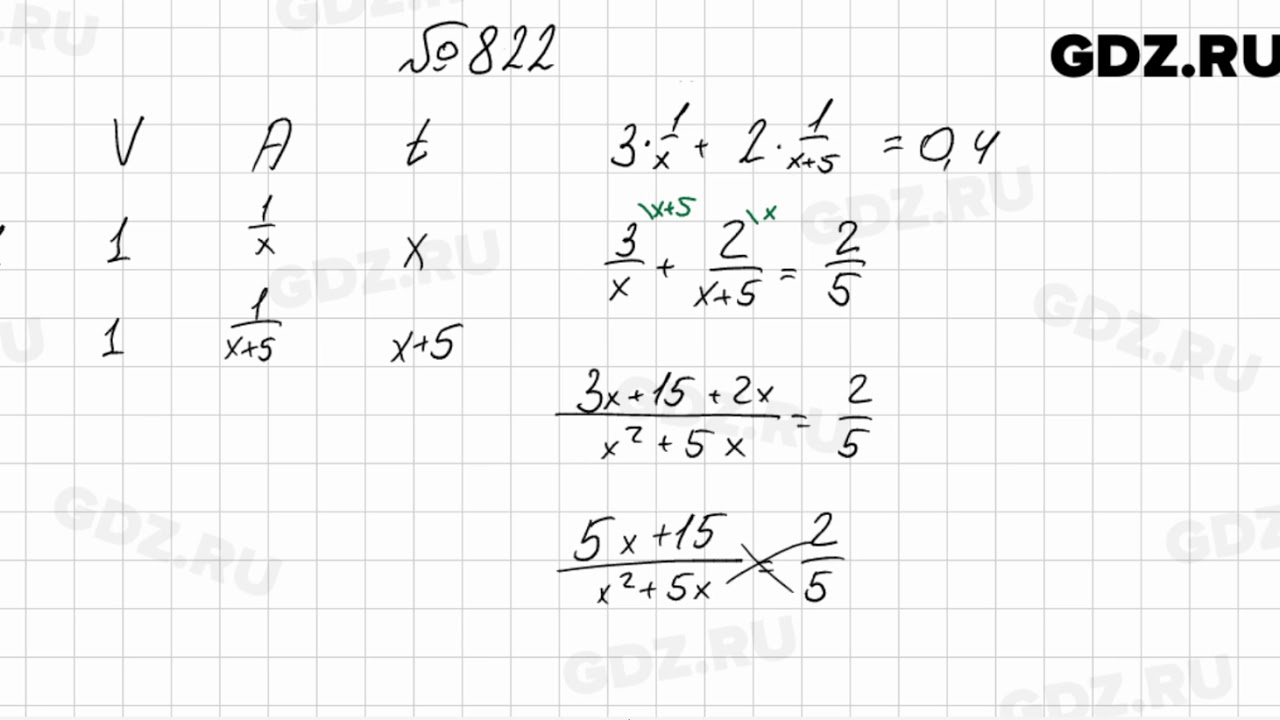 №822
GDZ.RU
V A t
1 1/x x
1 1/(x+5) x+5
3·1/x + 2·1/(x+5) = 0,4
\x+5 \x
3/x + 2/(x+5) = 2/5
(3x+15+2x)/(x²+5x) = 2/5
(5x+15)/(x²+5x) = 2/5